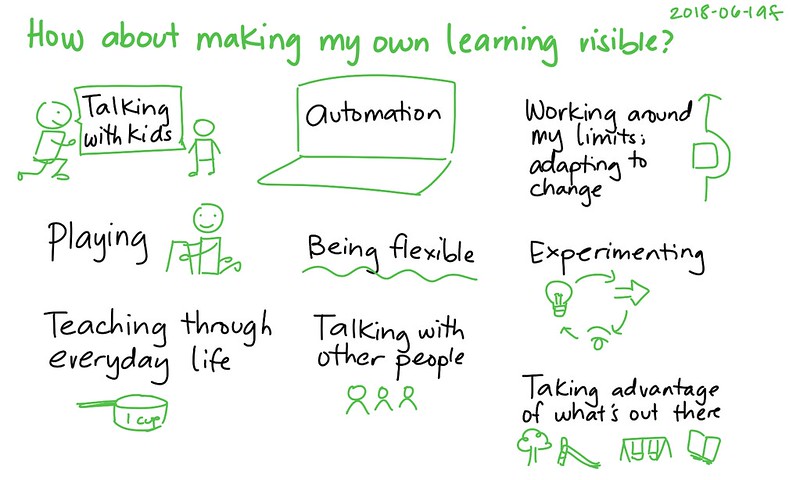 2018-06-19f
How about making my own learning visible?
Talking
with kids
Automation
Working around
my limits;
adapting to
change
Playing
Being flexible
Experimenting
Teaching through
everyday life
1 cup
Talking with
other people
Taking advantage
of what's out there